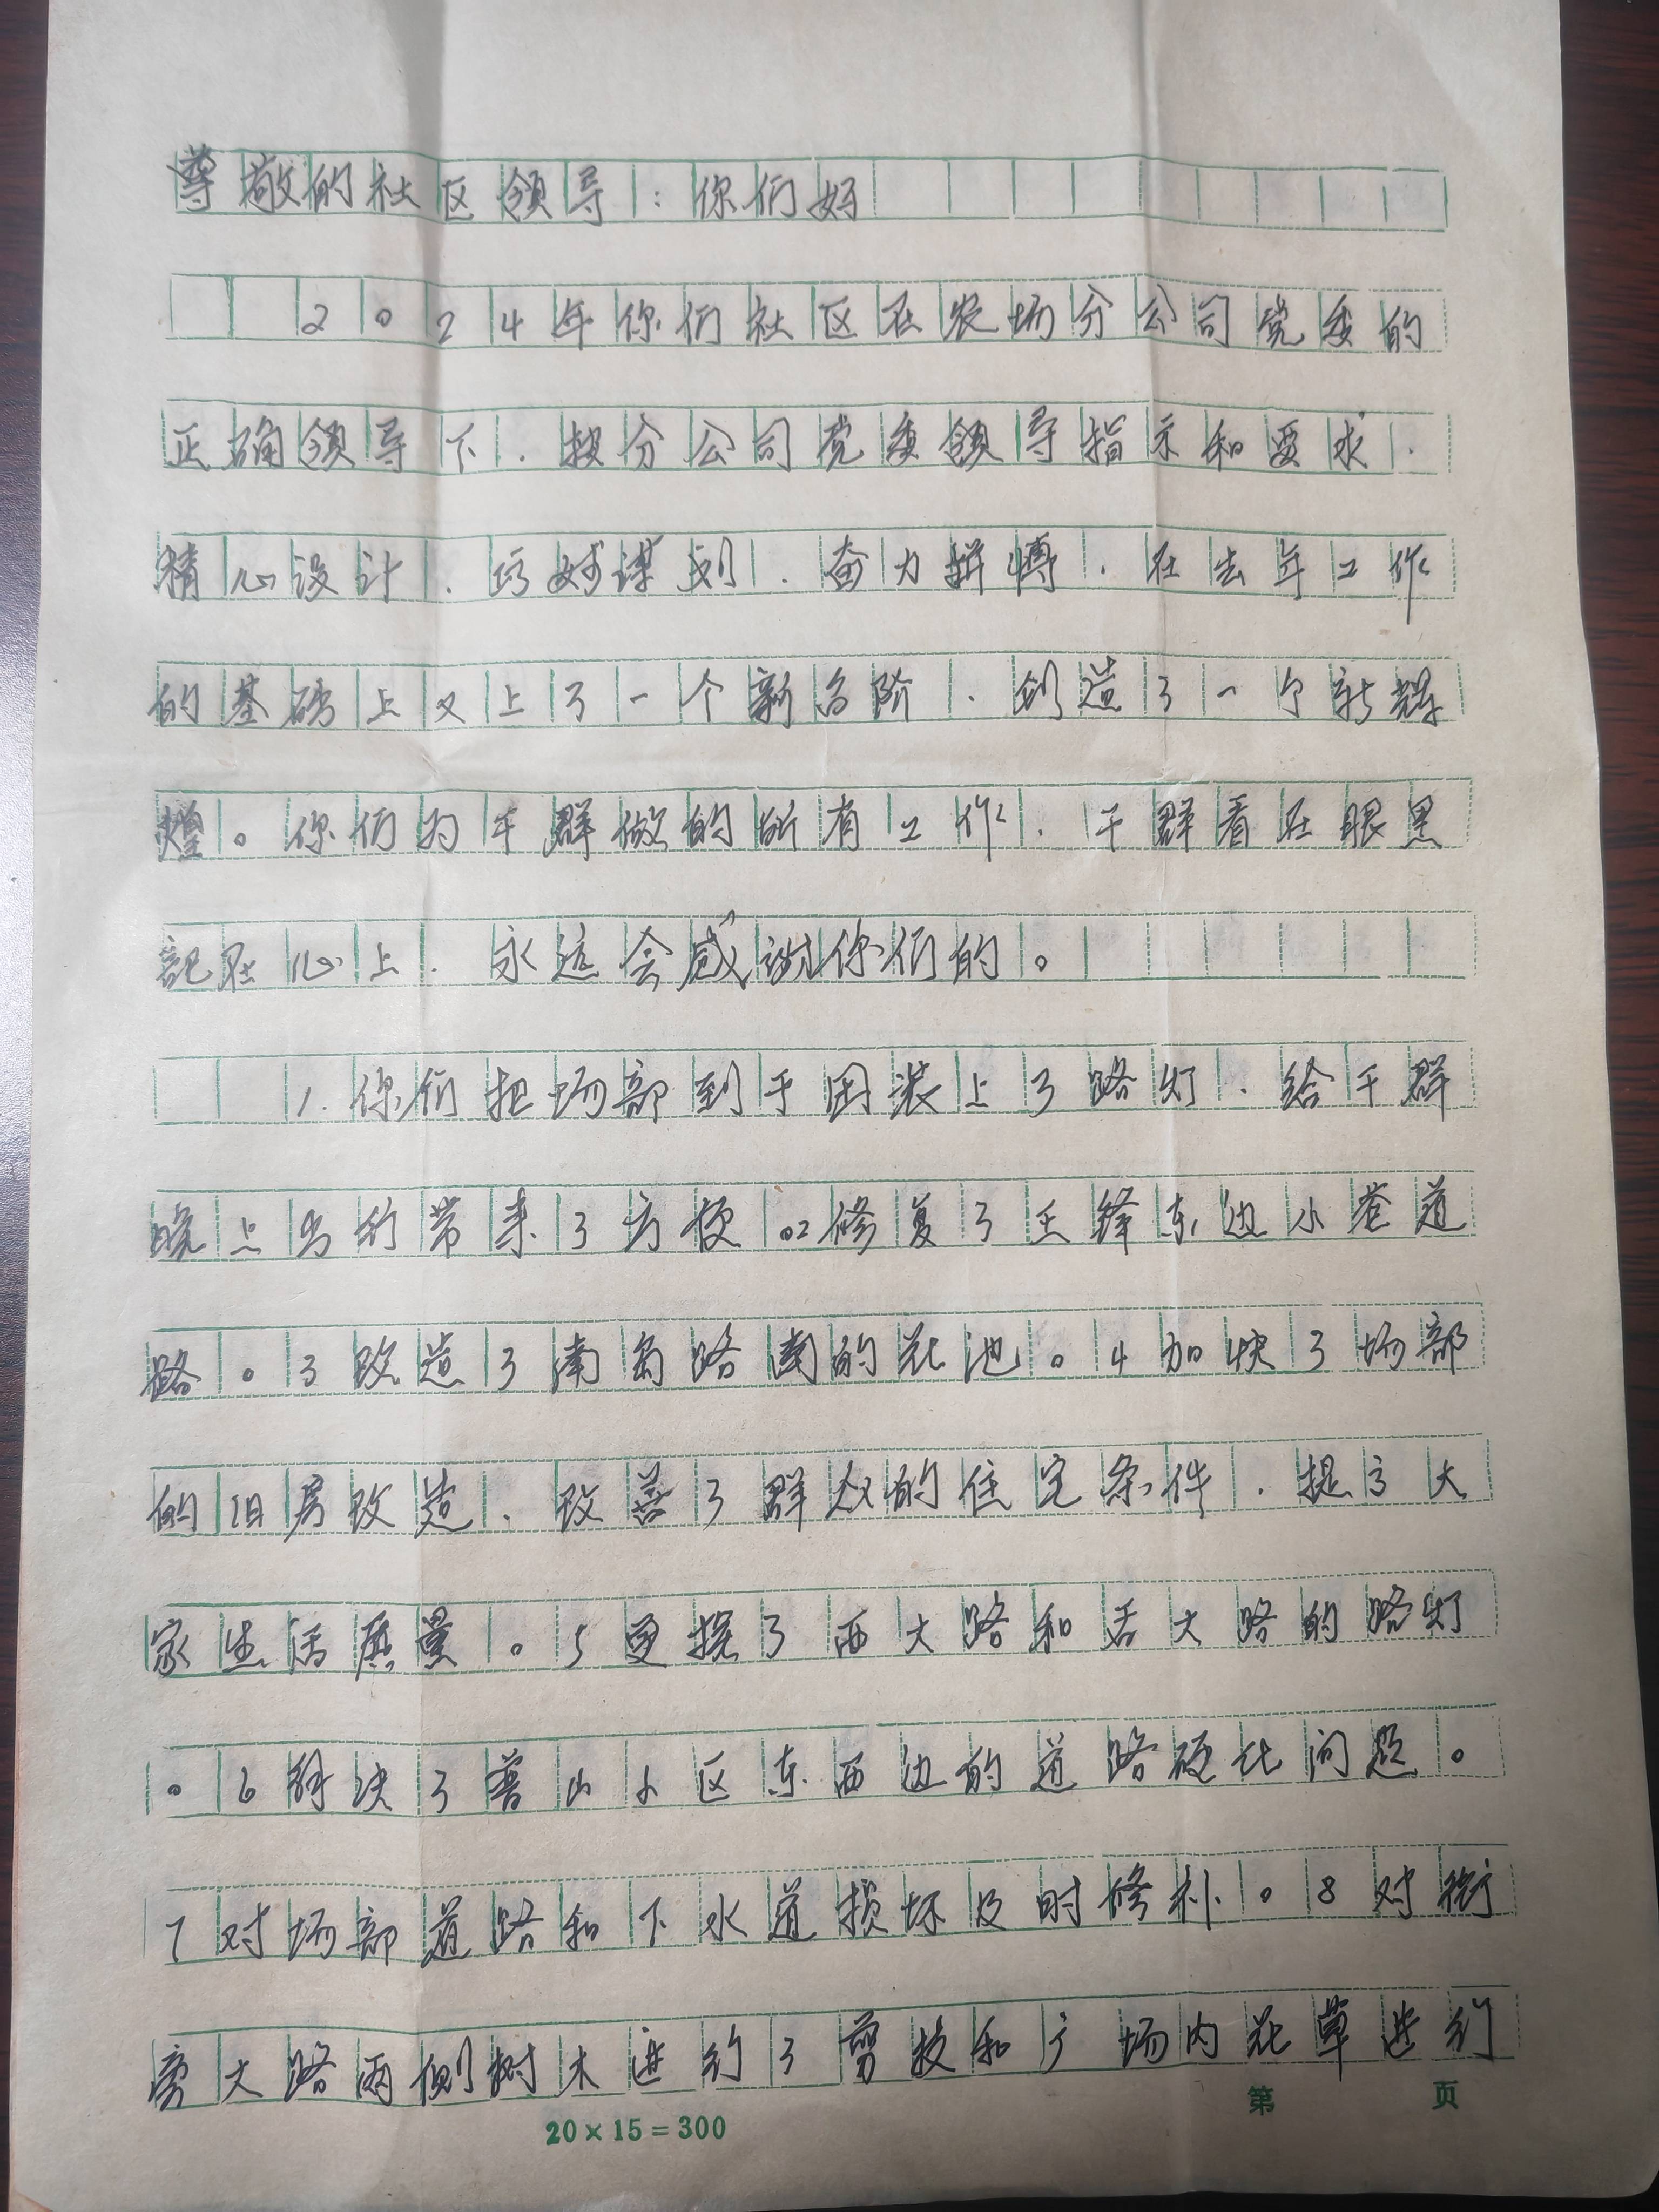 尊敬的社区领导:你们好
2024年你们社区在农场分公司党委的
正确领导下.按分公司党委领导指示和要求.
精心设计.巧妙谋划.奋力拼博.在去年工作
的基础上又上了一个新台阶.创造了一个新辉
煌。你们为干群做的所有工作.干群看在眼里
記在心上.永远会感谢你们的。
1.你们把场部到于困装上了路灯.给干群
晚上出行带来了方便。2修复了王锋东边小巷道
路。3改造了南岛路南的花池。4加快了场部
的旧房改造.改善了群众的住宅条件.提高大
家生活质量。5更换了西大路和后大路的路灯
。6解决了普山小区东西边的道路硬化问题。
7对场部道路和下水道损坏及时修补。8对衔
旁大路两侧树木进行了剪枝和广场内花草进行
20×15=300
第 页